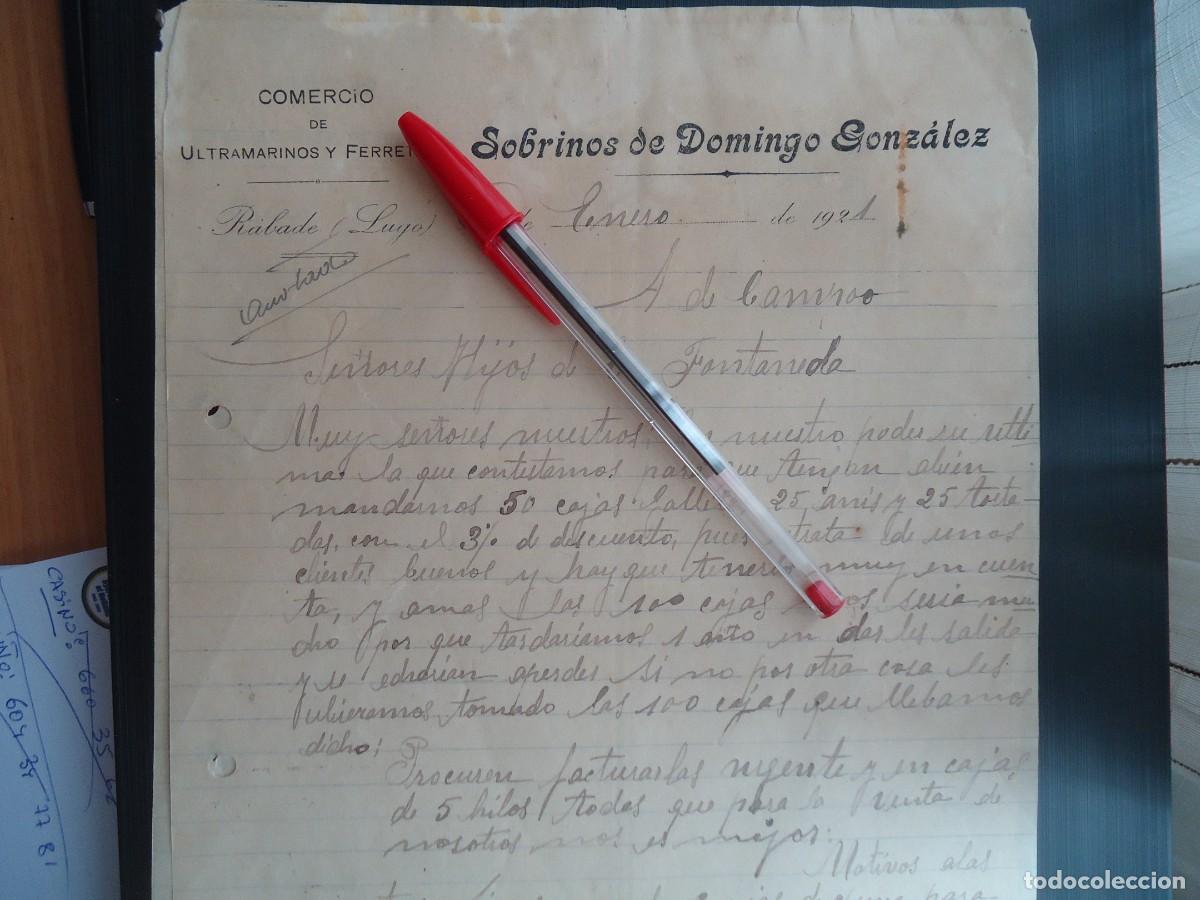 COMERCIO
DE
ULTRAMARINOS Y FERRET
Sobrinos de Domingo González
Rábade (Lugo) de Enero de 1921
Anotado
A de Campoo
Señores Hijos de Fontaneda
Muy señores nuestros: nuestro poder su ulti
ma la que contestamos para que tengan abien
mandarnos 50 cajas Galle 25 anis y 25 tosta
das, con el 3% de descuento, pues trata de unos
clientes buenos y hay que tener muy en cuen
ta, y amas las 100 cajas seria mu
cho por que tardariamos en dar les salida
y se echarian aperder si no por otra cosa les
ubieramos tomado las 100 cajas que llebamos
dicho;
Procuren facturarlas urgente y en cajas
de 5 kilos todas que para la venta de
nosotros nos es mejor.
Motivos alas
CASINO:
600 35
604 34 77 81
todocoleccion